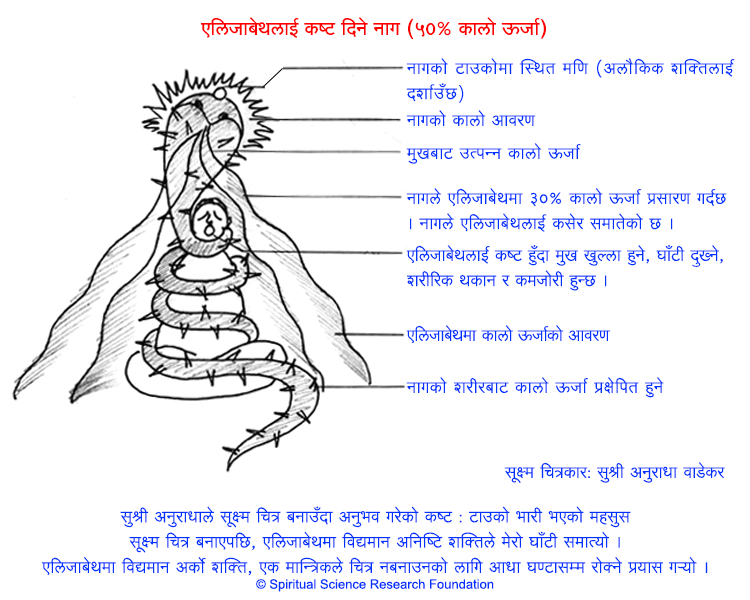 एलिजाबेथलाई कष्ट दिने नाग (५०% कालो ऊर्जा)
नागको टाउकोमा स्थित मणि (अलौकिक शक्तिलाई
दर्शाउँछ)
नागको कालो आवरण
मुखबाट उत्पन्न कालो ऊर्जा
नागले एलिजाबेथमा ३०% कालो ऊर्जा प्रसारण गर्दछ
। नागले एलिजाबेथलाई कसेर समातेको छ ।
एलिजाबेथलाई कष्ट हुँदा मुख खुल्ला हुने, घाँटी दुख्ने,
शारीरिक थकान र कमजोरी हुन्छ ।
एलिजाबेथमा कालो ऊर्जाको आवरण
नागको शरीरबाट कालो ऊर्जा प्रक्षेपित हुने
सूक्ष्म चित्रकार: सुश्री अनुराधा वाडेकर
सुश्री अनुराधाले सूक्ष्म चित्र बनाउँदा अनुभव गरेको कष्ट : टाउको भारी भएको महसुस
सूक्ष्म चित्र बनाएपछि, एलिजाबेथमा विद्यमान अनिष्टि शक्तिले मेरो घाँटी समात्यो ।
एलिजाबेथमा विद्यमान अर्को शक्ति, एक मान्त्रिकले चित्र नबनाउनको लागि आधा घण्टासम्म रोक्ने प्रयास गऱ्यो ।
© Spiritual Science Research Foundation